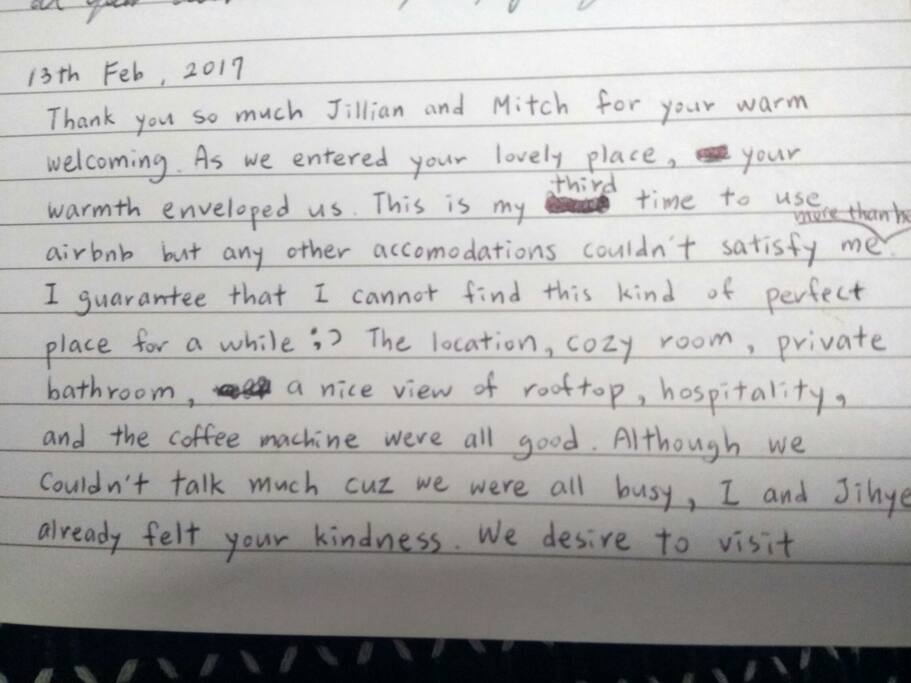 13th Feb, 2017
Thank you so much Jillian and Mitch for your warm
welcoming. As we entered your lovely place, your
warmth enveloped us. This is my third time to use
more than
airbnb but any other accomodations couldn't satisfy me.
I guarantee that I cannot find this kind of perfect
place for a while :) The location, cozy room, private
bathroom, a nice view of rooftop, hospitality,
and the coffee machine were all good. Although we
Couldn't talk much cuz we were all busy, I and Jihye
already felt your kindness. We desire to visit